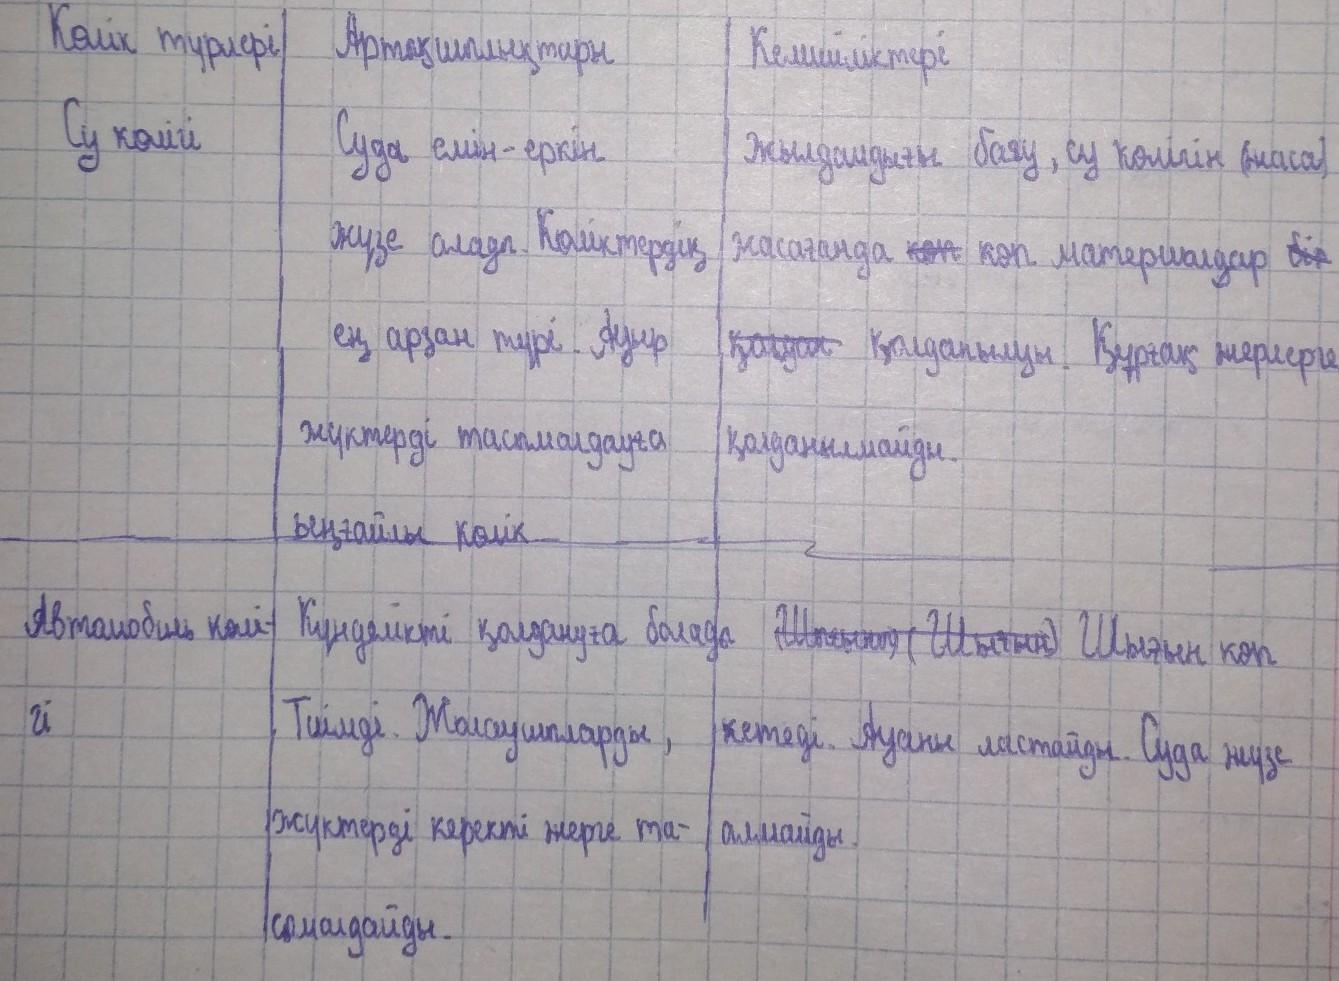 Көлік түрлері Артықшылықтары Кемшіліктері
Су көлігі Суда емін-еркін жылдамдығы баяу, су көлігін (жаса)
жүзе алады. Көліктердің жасағанда көп көп материалдар
ең арзан түрі. Ауыр қолданылуы. Құрғақ жерлерге
жүктерді тасымалдауға қолданылмайды.
ыңғайлы көлік
Автомобиль көлі- Күнделікті қолдануға болады (Шығын) Шығын көп
гі Тиімді. Жолаушыларды, кетеді. Ауаны ластайды. Суда жүзе
жүктерді керекті жерге та- алмайды.
сымалдайды.